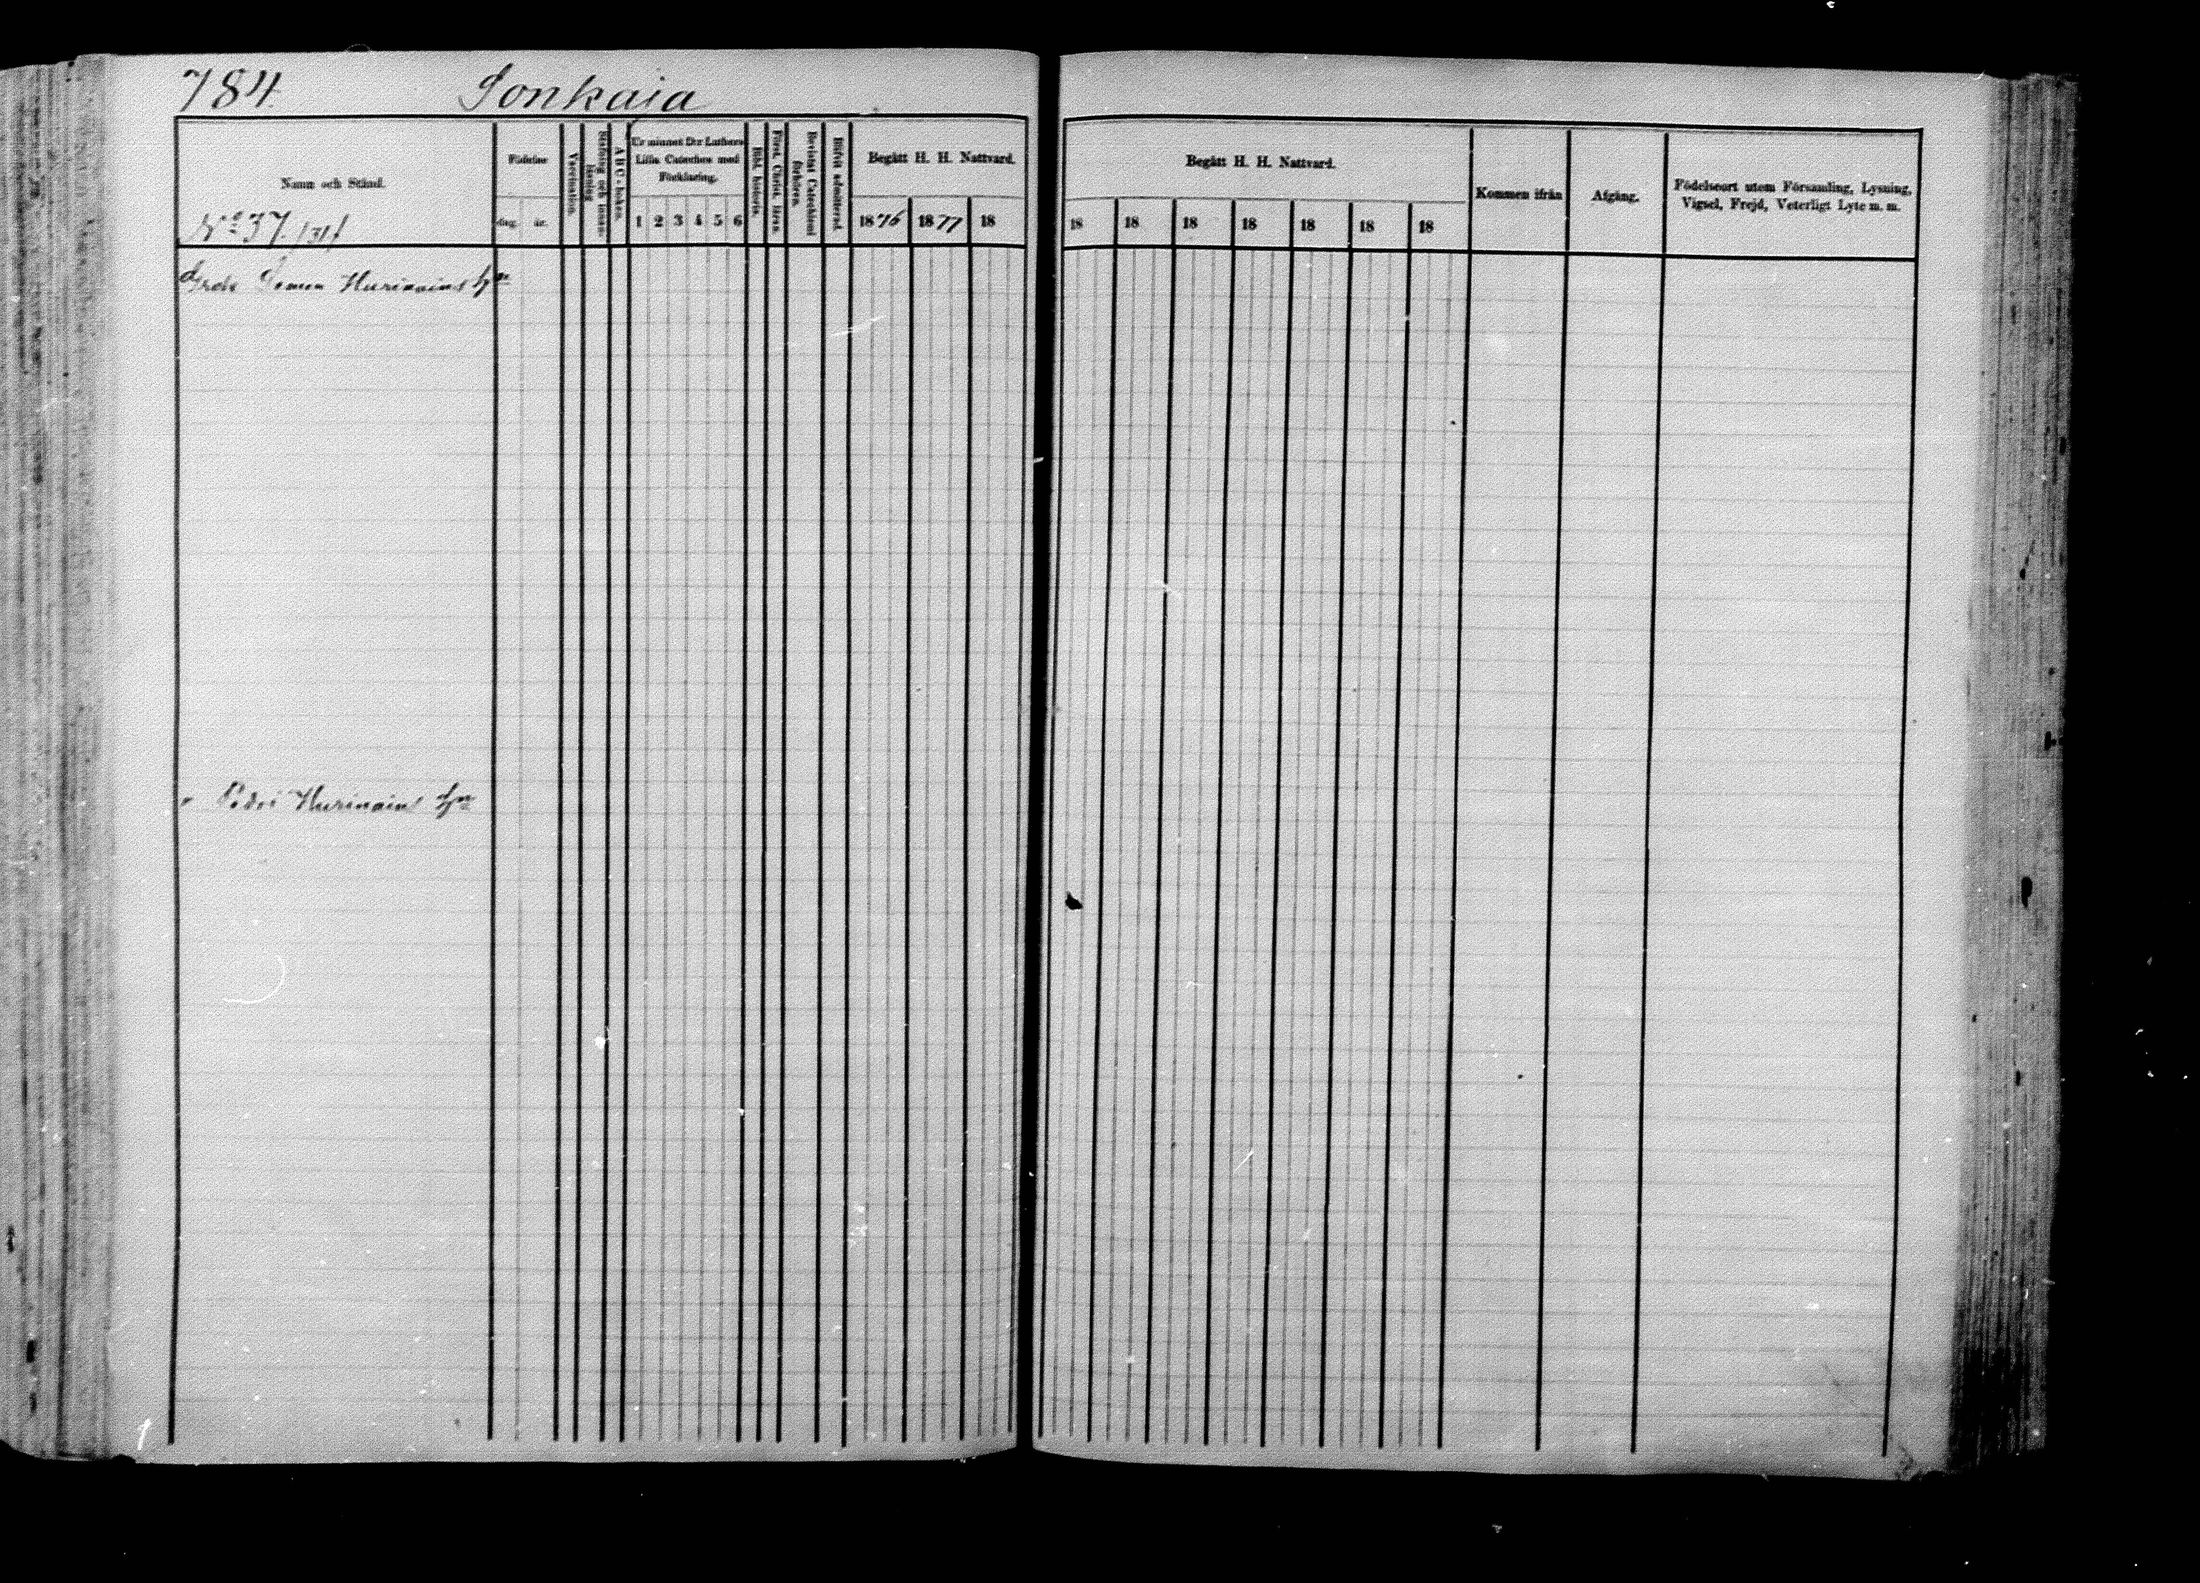 784 Sonkaja
Namn och Stånd.
Födelse
dag. år.
Vaccination.
Stafning och innanläsning
A B C-boken.
Ur minnet Dr Luthers Lilla Cateches med Förklaring.
1 2 3 4 5 6
Bibl. historia.
Först. Christ. läran.
Bevistat Catechismi förhören.
Blifvit admitterad.
Begått H. H. Nattvard.
1876 1877 18
Begått H. H. Nattvard.
18 18 18 18 18 18 18
Kommen ifrån
Afgång.
Födelseort utom Församling, Lysning, Vigsel, Frejd, Veterligt Lyte m. m.
No 37.
Simon Hurinains
Pedri Hurinains